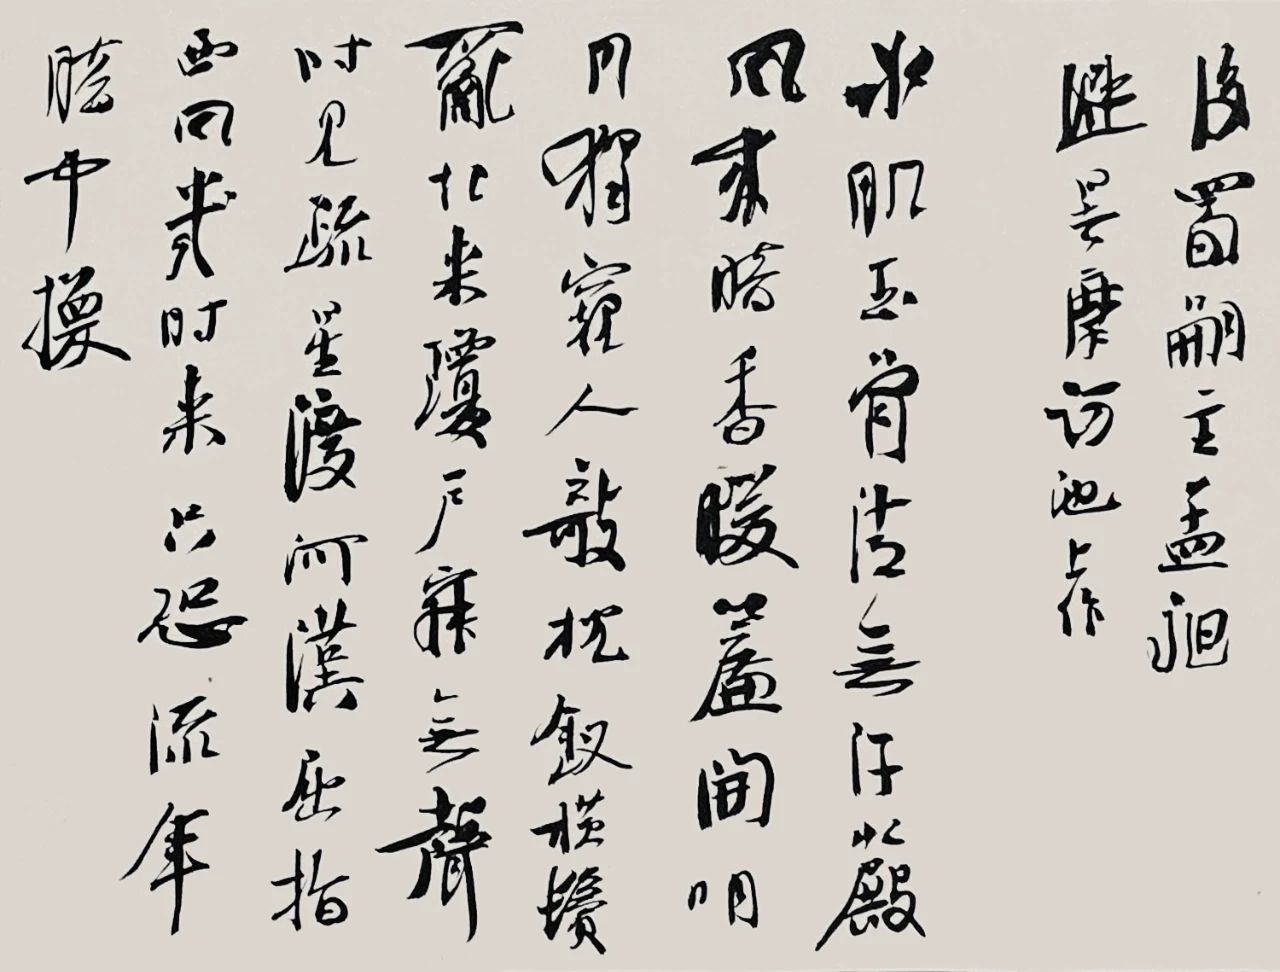 後蜀嗣主孟昶
避暑摩诃池上作
冰肌玉骨清無汗水殿
風来暗香暖簾開明
月獨窺人敧枕釵横鬢
亂起来瓊户寂無聲
时見疏星渡河漢屈指
西風幾时来只恐流年
暗中換